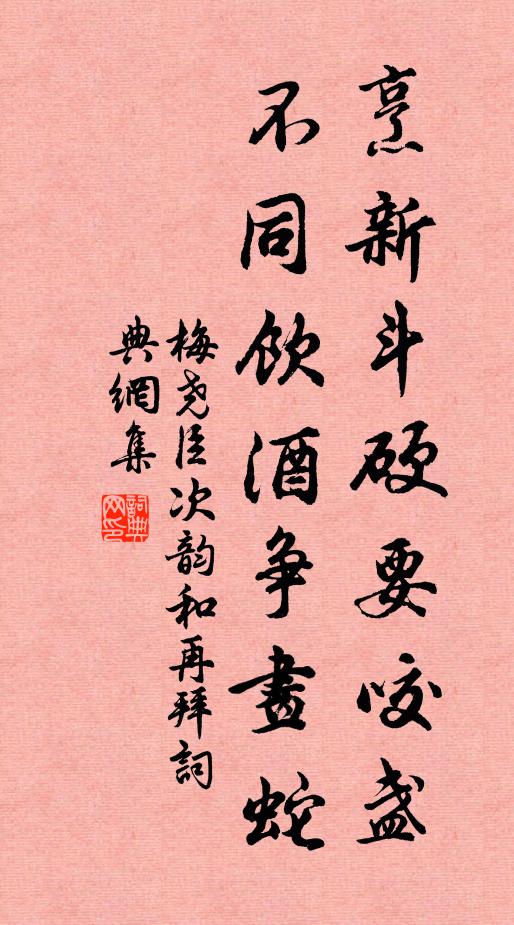 烹新斗硬要咬盏
不同饮酒争畫蛇
梅尧臣次韵和再拜詞
典網集
詞典網印